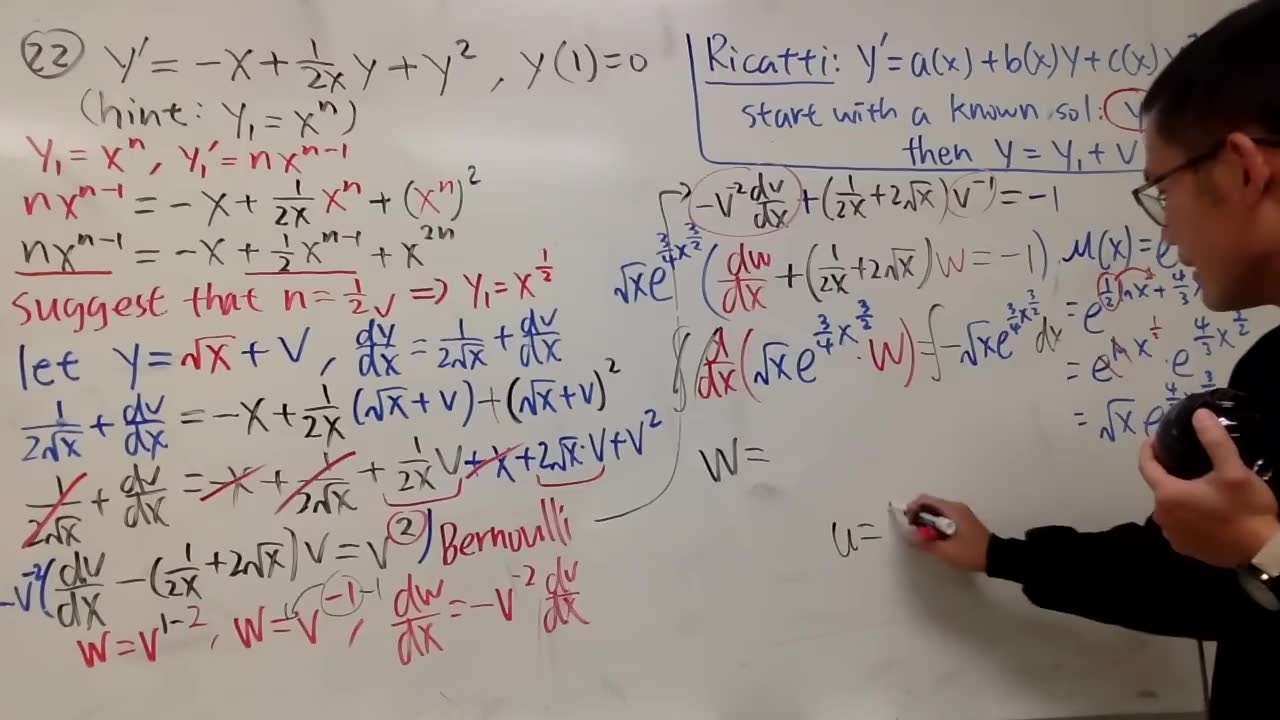 22 y' = -x + 1/(2x) y + y², y(1)=0
(hint: y₁ = xⁿ)
y₁ = xⁿ, y₁' = nxⁿ⁻¹
nxⁿ⁻¹ = -x + 1/(2x) xⁿ + (xⁿ)²
nxⁿ⁻¹ = -x + 1/2 xⁿ⁻¹ + x²ⁿ
suggest that n = 1/2 ✓ ⇒ y₁ = x^(1/2)
let y = √x + v, dy/dx = 1/(2√x) + dv/dx
1/(2√x) + dv/dx = -x + 1/(2x) (√x + v) + (√x + v)²
1/(2√x) + dv/dx = -x + 1/(2√x) + 1/(2x) v + x + 2√x·v + v²
-v⁻²(dv/dx - (1/(2x) + 2√x) v = v²) Bernoulli
w = v¹⁻², w = v⁻¹, dw/dx = -v⁻² dv/dx
Ricatti: y' = a(x) + b(x)y + c(x)
start with a known sol:
then y = y₁ + v
-v⁻² dv/dx + (1/(2x) + 2√x) v⁻¹ = -1
√x e^(3/4 x^(3/2)) (dw/dx + (1/(2x) + 2√x) w = -1)
∫ d/dx (√x e^(3/4 x^(3/2)) · w) = ∫ -√x e^(3/4 x^(3/2)) dx
w =
u =
μ(x) = e
= e^(1/2 ln x + 4/3
= e^(ln x^(1/2)) · e^(4/3 x^(3/2))
= √x e